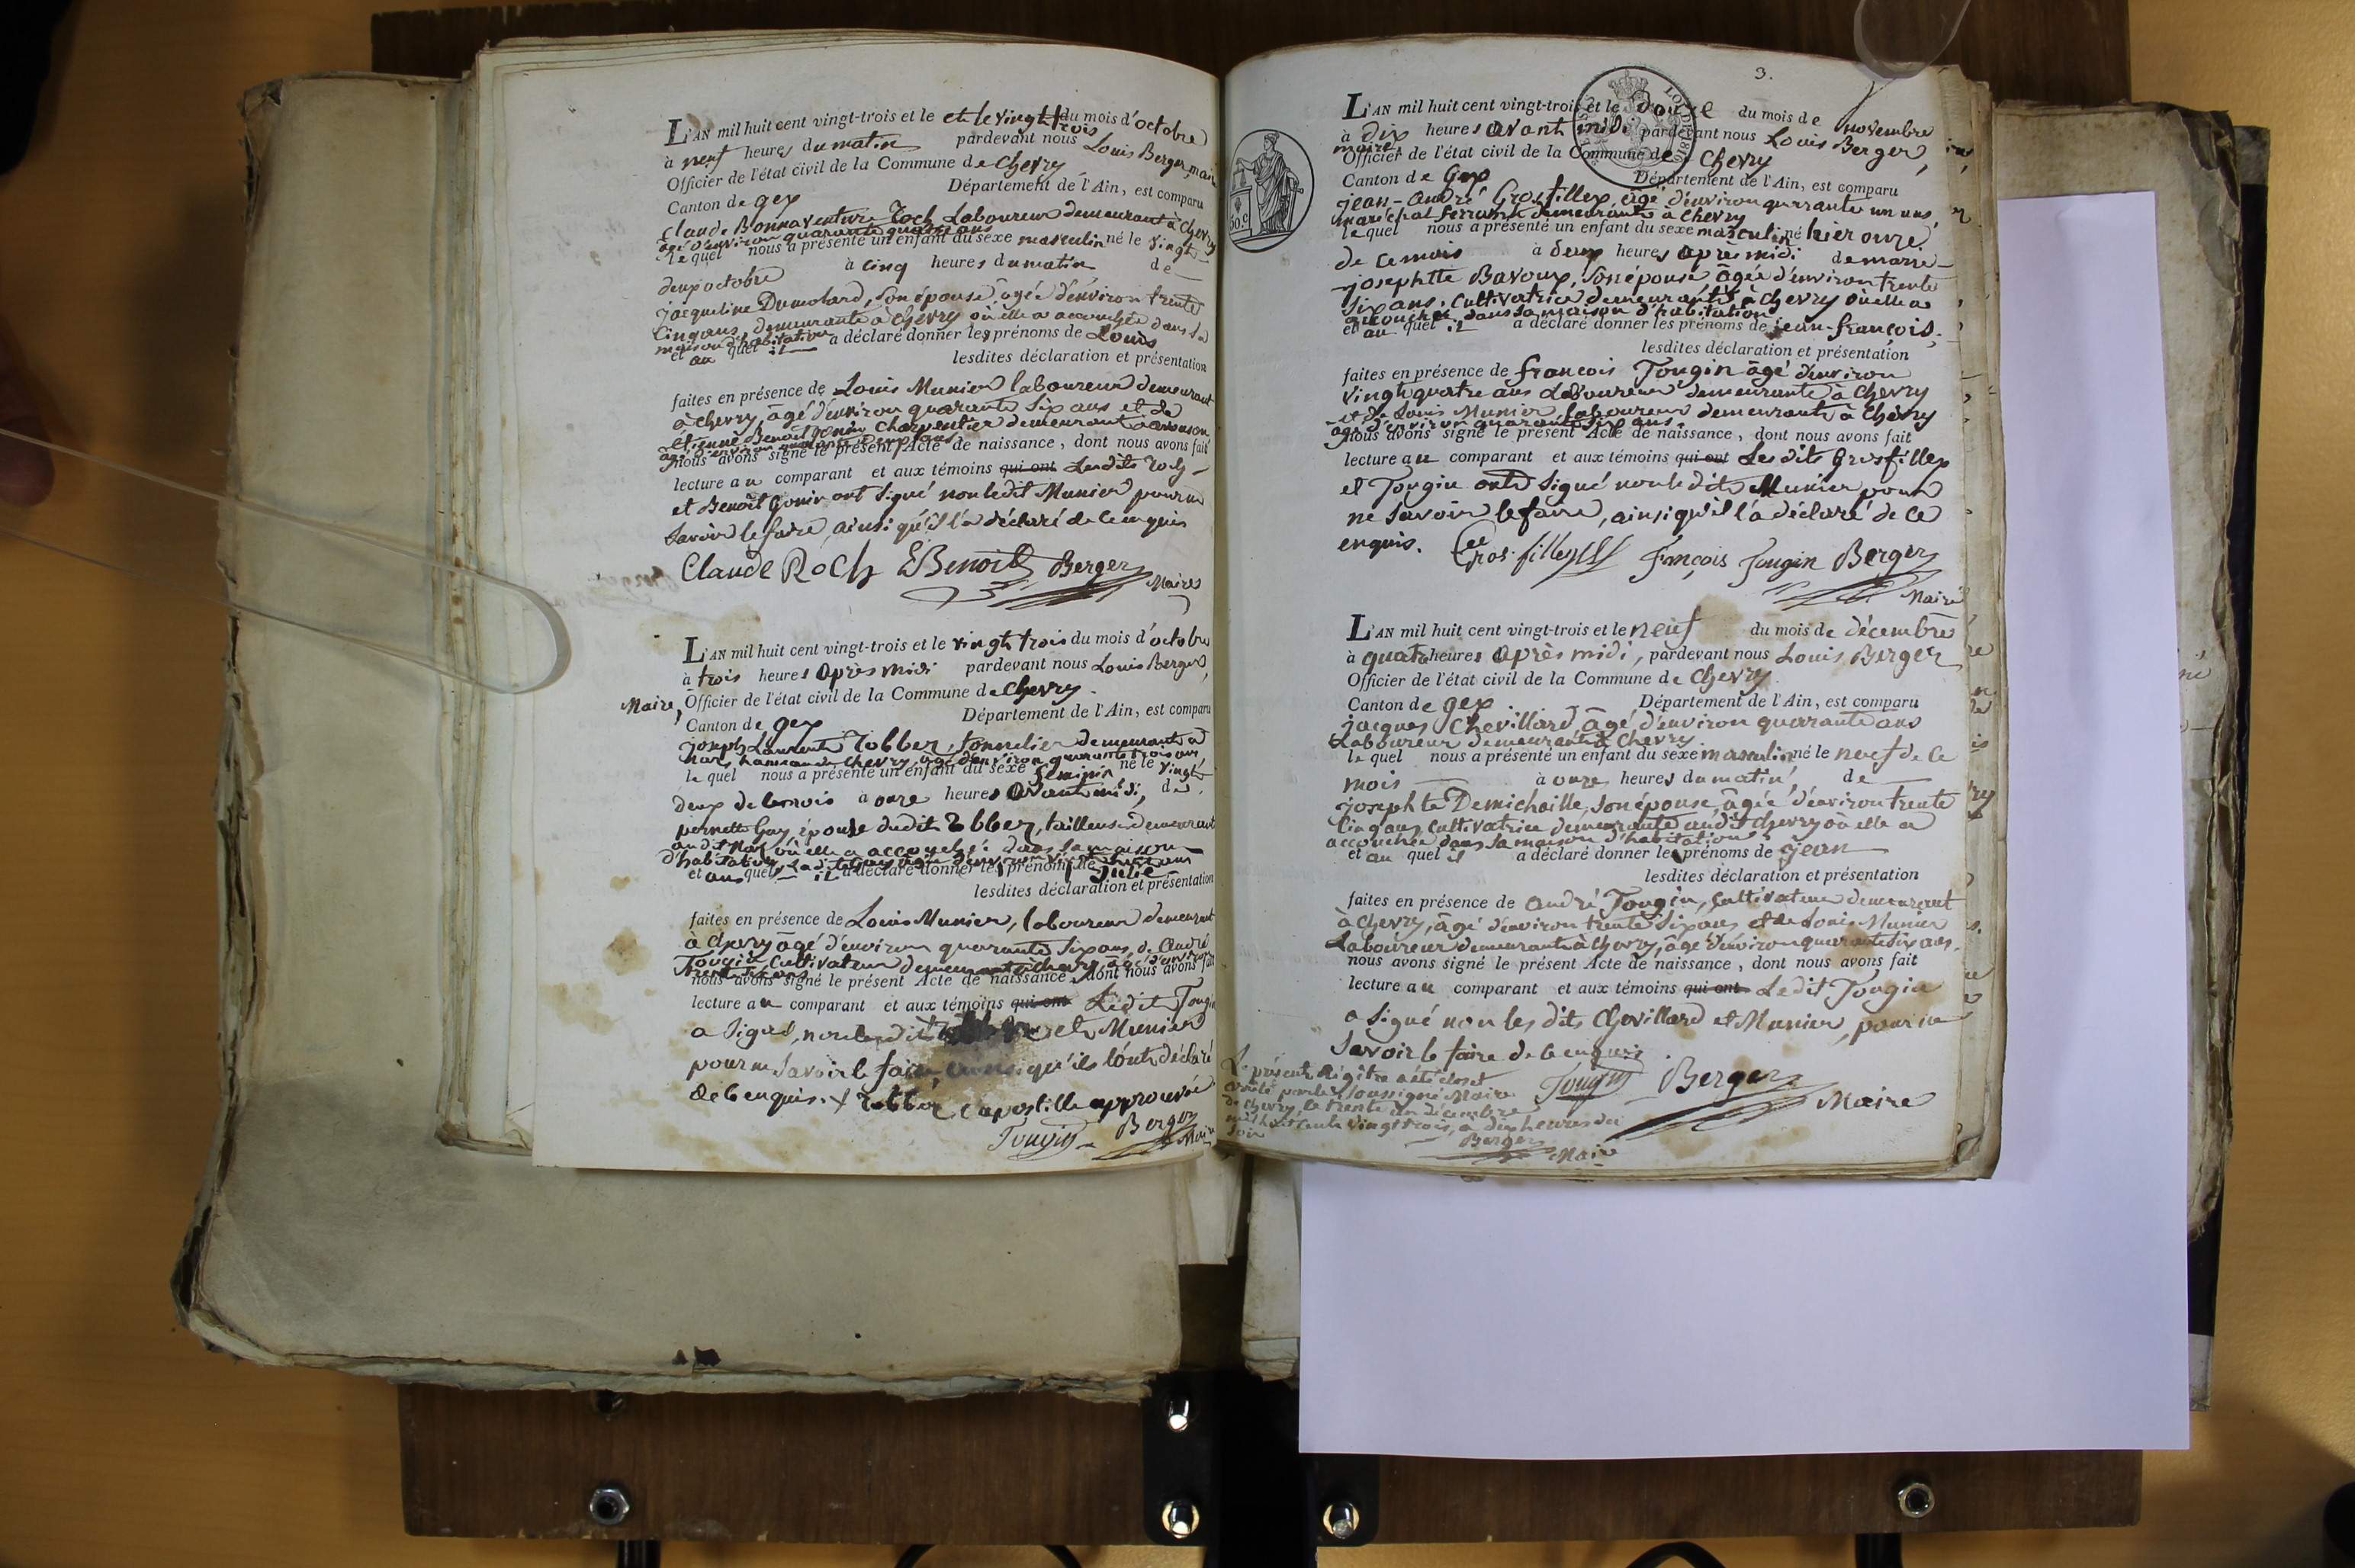 L'AN mil huit cent vingt-trois et le et le vingt trois du mois d'octobre
à neuf heures du matin pardevant nous Louis Berger, maire
Officier de l'état civil de la Commune de Chevry
Canton de gex Département de l'Ain, est comparu
Claude Bonnaventure Roch Laboureur demeurant à Chevry
âgé d'environ quarante quatre ans
le quel nous a présenté un enfant du sexe masculin né le vingt
deux octobre à cinq heures du matin de
jacqueline Dumolard, son épouse, agée d'environ trente
Cinq ans, demeurante à Chevry où elle a accouchée dans sa
maison d'habitation
et au quel il a déclaré donner les prénoms de Louis
lesdites déclaration et présentation
faites en présence de Louis Munier laboureur demeurant
à Chevry, âgé d'environ quarante six ans et de
Etienne Benoit Gonin Charpentier demeurant à
âgé d'environ quarante deux ans
nous avons signé le présent Acte de naissance, dont nous avons fait
lecture au comparant et aux témoins qui ont Lesdits Roch
et Benoit Gonin ont signé non ledit Munier pour ne
Savoir le faire, ainsi qu'il l'a déclaré de ce enquis
Claude Roch EBenoit Berger
Maire
L'AN mil huit cent vingt-trois et le vingt trois du mois d'octobre
à trois heures après midi pardevant nous Louis Berger,
Maire, Officier de l'état civil de la Commune de Chevry.
Canton de gex Département de l'Ain, est comparu
joseph Laurent Robber, tonnelier demeurant à
Nars hameau de Chevry, âgé d'environ quarante trois ans
le quel nous a présenté un enfant du sexe feminin né le vingt
deux de ce mois à onze heures avant midi, de
pernette Gay, épouse dudit Robber, tailleuse demeurant
audit Nars où elle a accouchée dans sa maison
d'habitation, ladite Gay agée d'environ vingt huit ans
et au quel il a déclaré donner les prénoms de Julie
lesdites déclaration et présentation
faites en présence de Louis Munier, laboureur demeurant
à Chevry âgé d'environ quarante six ans, de André
Tougin, Cultivateur demeurant à Chevry âgé d'environ
trente six ans
nous avons signé le présent Acte de naissance, dont nous avons fait
lecture au comparant et aux témoins qui ont Ledit Tougin
a signé, non lesdits et Munier
pour ne savoir le faire, ainsi qu'ils l'ont déclaré
de ce enquis. + Robber, l'apostille approuvée
Tougin Berger
Maire
3.
L'AN mil huit cent vingt-trois et le douze du mois de novembre
à dix heures avant midi pardevant nous Louis Berger,
maire
Officier de l'état civil de la Commune de Chevry
Canton de Gex Département de l'Ain, est comparu
jean-andré Grosfillex, âgé d'environ quarante un ans,
maréchal ferrant demeurant à Chevry
le quel nous a présenté un enfant du sexe masculin né hier onze
de ce mois à deux heures après midi de marie
josephte Bavoux, son épouse âgée d'environ trente
six ans, cultivatrice demeurante à Chevry où elle a
accouchée dans sa maison d'habitation
et au quel il a déclaré donner les prénoms de jean-françois.
lesdites déclaration et présentation
faites en présence de françois Tougin âgé d'environ
vingt quatre ans Laboureur demeurant à Chevry
et de Louis Munier, laboureur demeurant à Chevry
âgé d'environ quarante six ans.
nous avons signé le présent Acte de naissance, dont nous avons fait
lecture au comparant et aux témoins qui ont Lesdits Grosfillex
et Tougin ont signé non ledit Munier pour
ne savoir le faire, ainsi qu'il l'a déclaré de ce
enquis. Grosfillex françois Tougin Berger
Maire
L'AN mil huit cent vingt-trois et le neuf du mois de décembre
à quatre heures après midi, pardevant nous Louis Berger
Officier de l'état civil de la Commune de Chevry
Canton de gex. Département de l'Ain, est comparu
jacques Chevillard âgé d'environ quarante ans
Laboureur demeurant à Chevry
le quel nous a présenté un enfant du sexe masculin né le neuf de ce
mois à onze heures du matin de
josephte Demichaille, son épouse, âgée d'environ trente
Cinq ans, Cultivatrice demeurante audit Chevry où elle a
accouchée dans sa maison d'habitation
et au quel il a déclaré donner les prénoms de jean
lesdites déclaration et présentation
faites en présence de André Tougin, Cultivateur demeurant
à Chevry, âgé d'environ trente six ans et de Louis Munier
Laboureur demeurant à Chevry, âgé d'environ quarante six ans.
nous avons signé le présent Acte de naissance, dont nous avons fait
lecture au comparant et aux témoins qui ont Ledit Tougin
a signé non lesdits Chevillard et Munier, pour ne
savoir le faire de ce enquis.
Tougin Berger
Maire
Le présent régitre a été closet
arrêté par le soussigné Maire
de Chevry, le trente un décembre
mil huit cent vingt trois, à dix heures du
soir
Berger
Maire
50.C